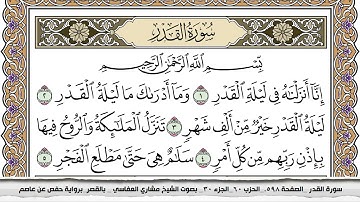 سُورَةُ الْقَدْرِ
بِسْمِ اللَّهِ الرَّحْمَٰنِ الرَّحِيمِ
إِنَّا أَنزَلْنَاهُ فِي لَيْلَةِ الْقَدْرِ ١ وَمَا أَدْرَاكَ مَا لَيْلَةُ الْقَدْرِ ٢
لَيْلَةُ الْقَدْرِ خَيْرٌ مِّنْ أَلْفِ شَهْرٍ ٣ تَنَزَّلُ الْمَلَائِكَةُ وَالرُّوحُ فِيهَا
بِإِذْنِ رَبِّهِم مِّن كُلِّ أَمْرٍ ٤ سَلَامٌ هِيَ حَتَّىٰ مَطْلَعِ الْفَجْرِ ٥
سورة القدر . الصفحة ٥٩٨. الحزب ٦٠ . الجزء ٣٠ . بصوت الشيخ مشاري العفاسي . بالقصر . برواية حفص عن عاصم